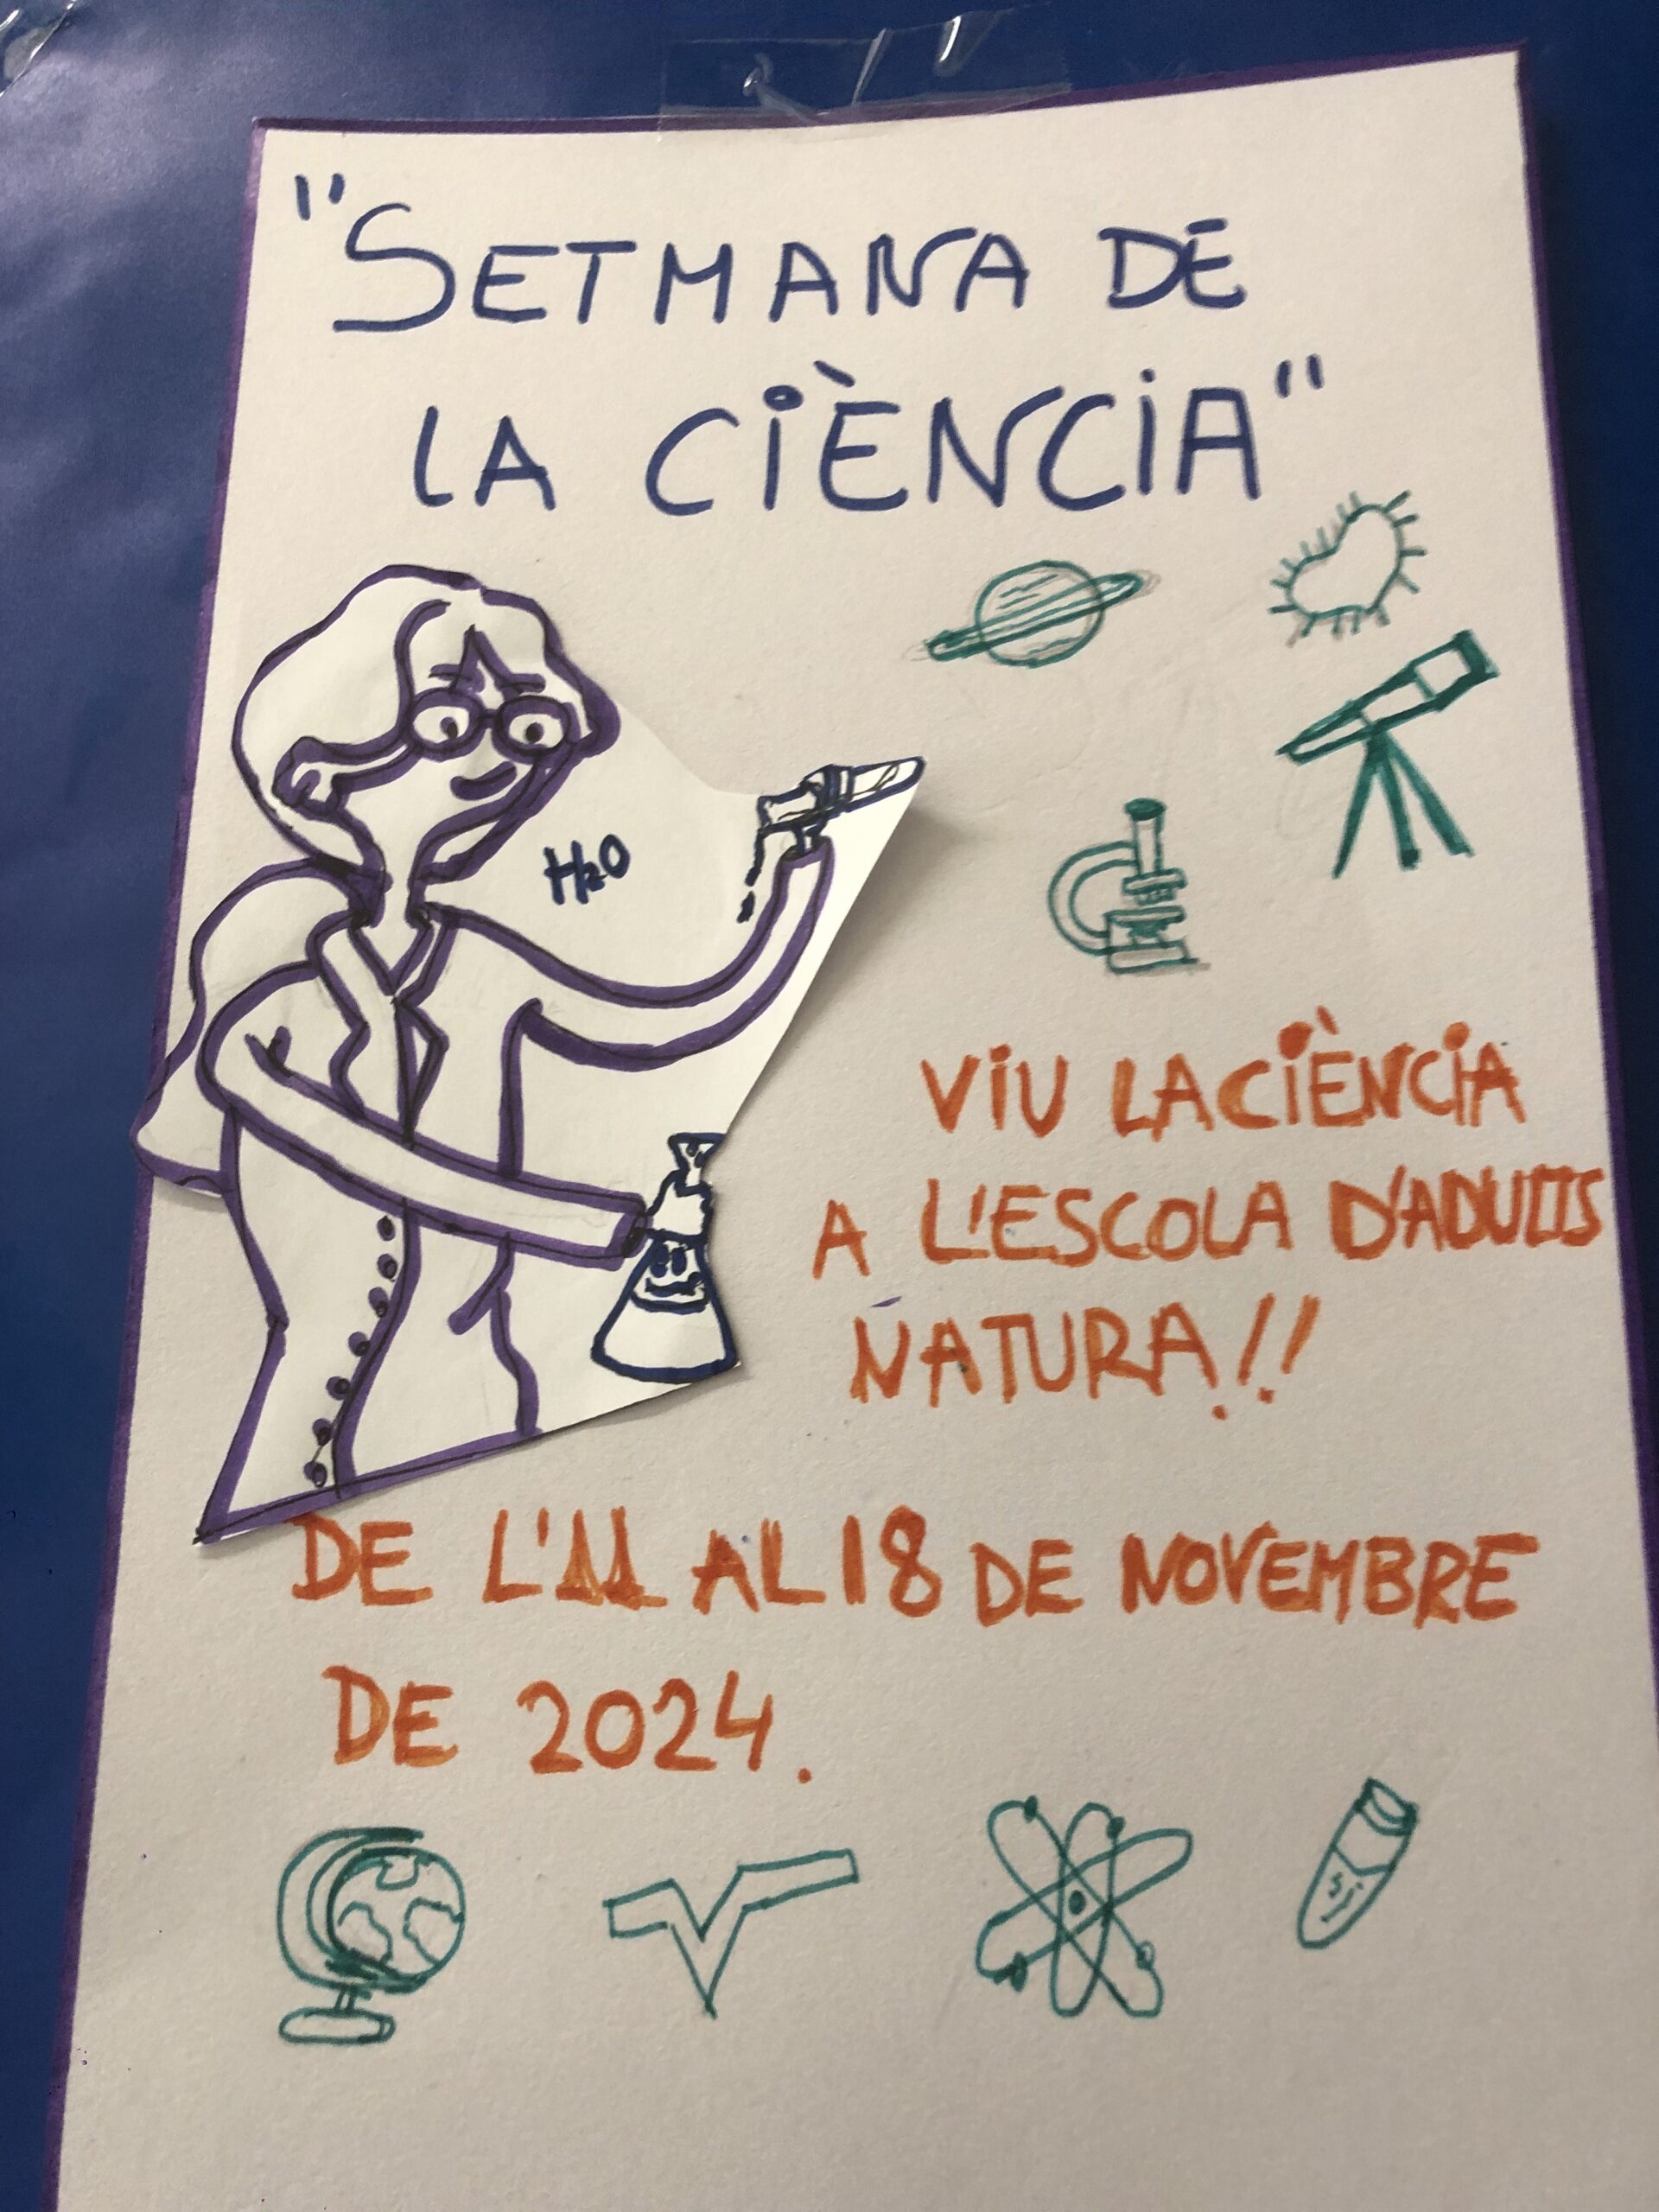 "SETMANA DE
LA CIÈNCIA"
H2O
VIU LA CIÈNCIA
A L'ESCOLA D'ADULTS
NATURA!!
DE L'11 AL 18 DE NOVEMBRE
DE 2024.